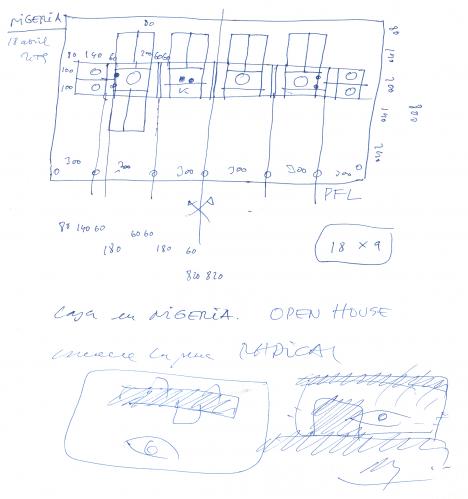 NIGERIA
18 abril
80
80 140 60 200 60 60
100
100
K
80
140
200
140
240
800
300 300 300 300 300 300
PFL
80 140 60
60 60
180
180 60
820 820
18 x 9
Casa en NIGERIA. OPEN HOUSE
RADICAL